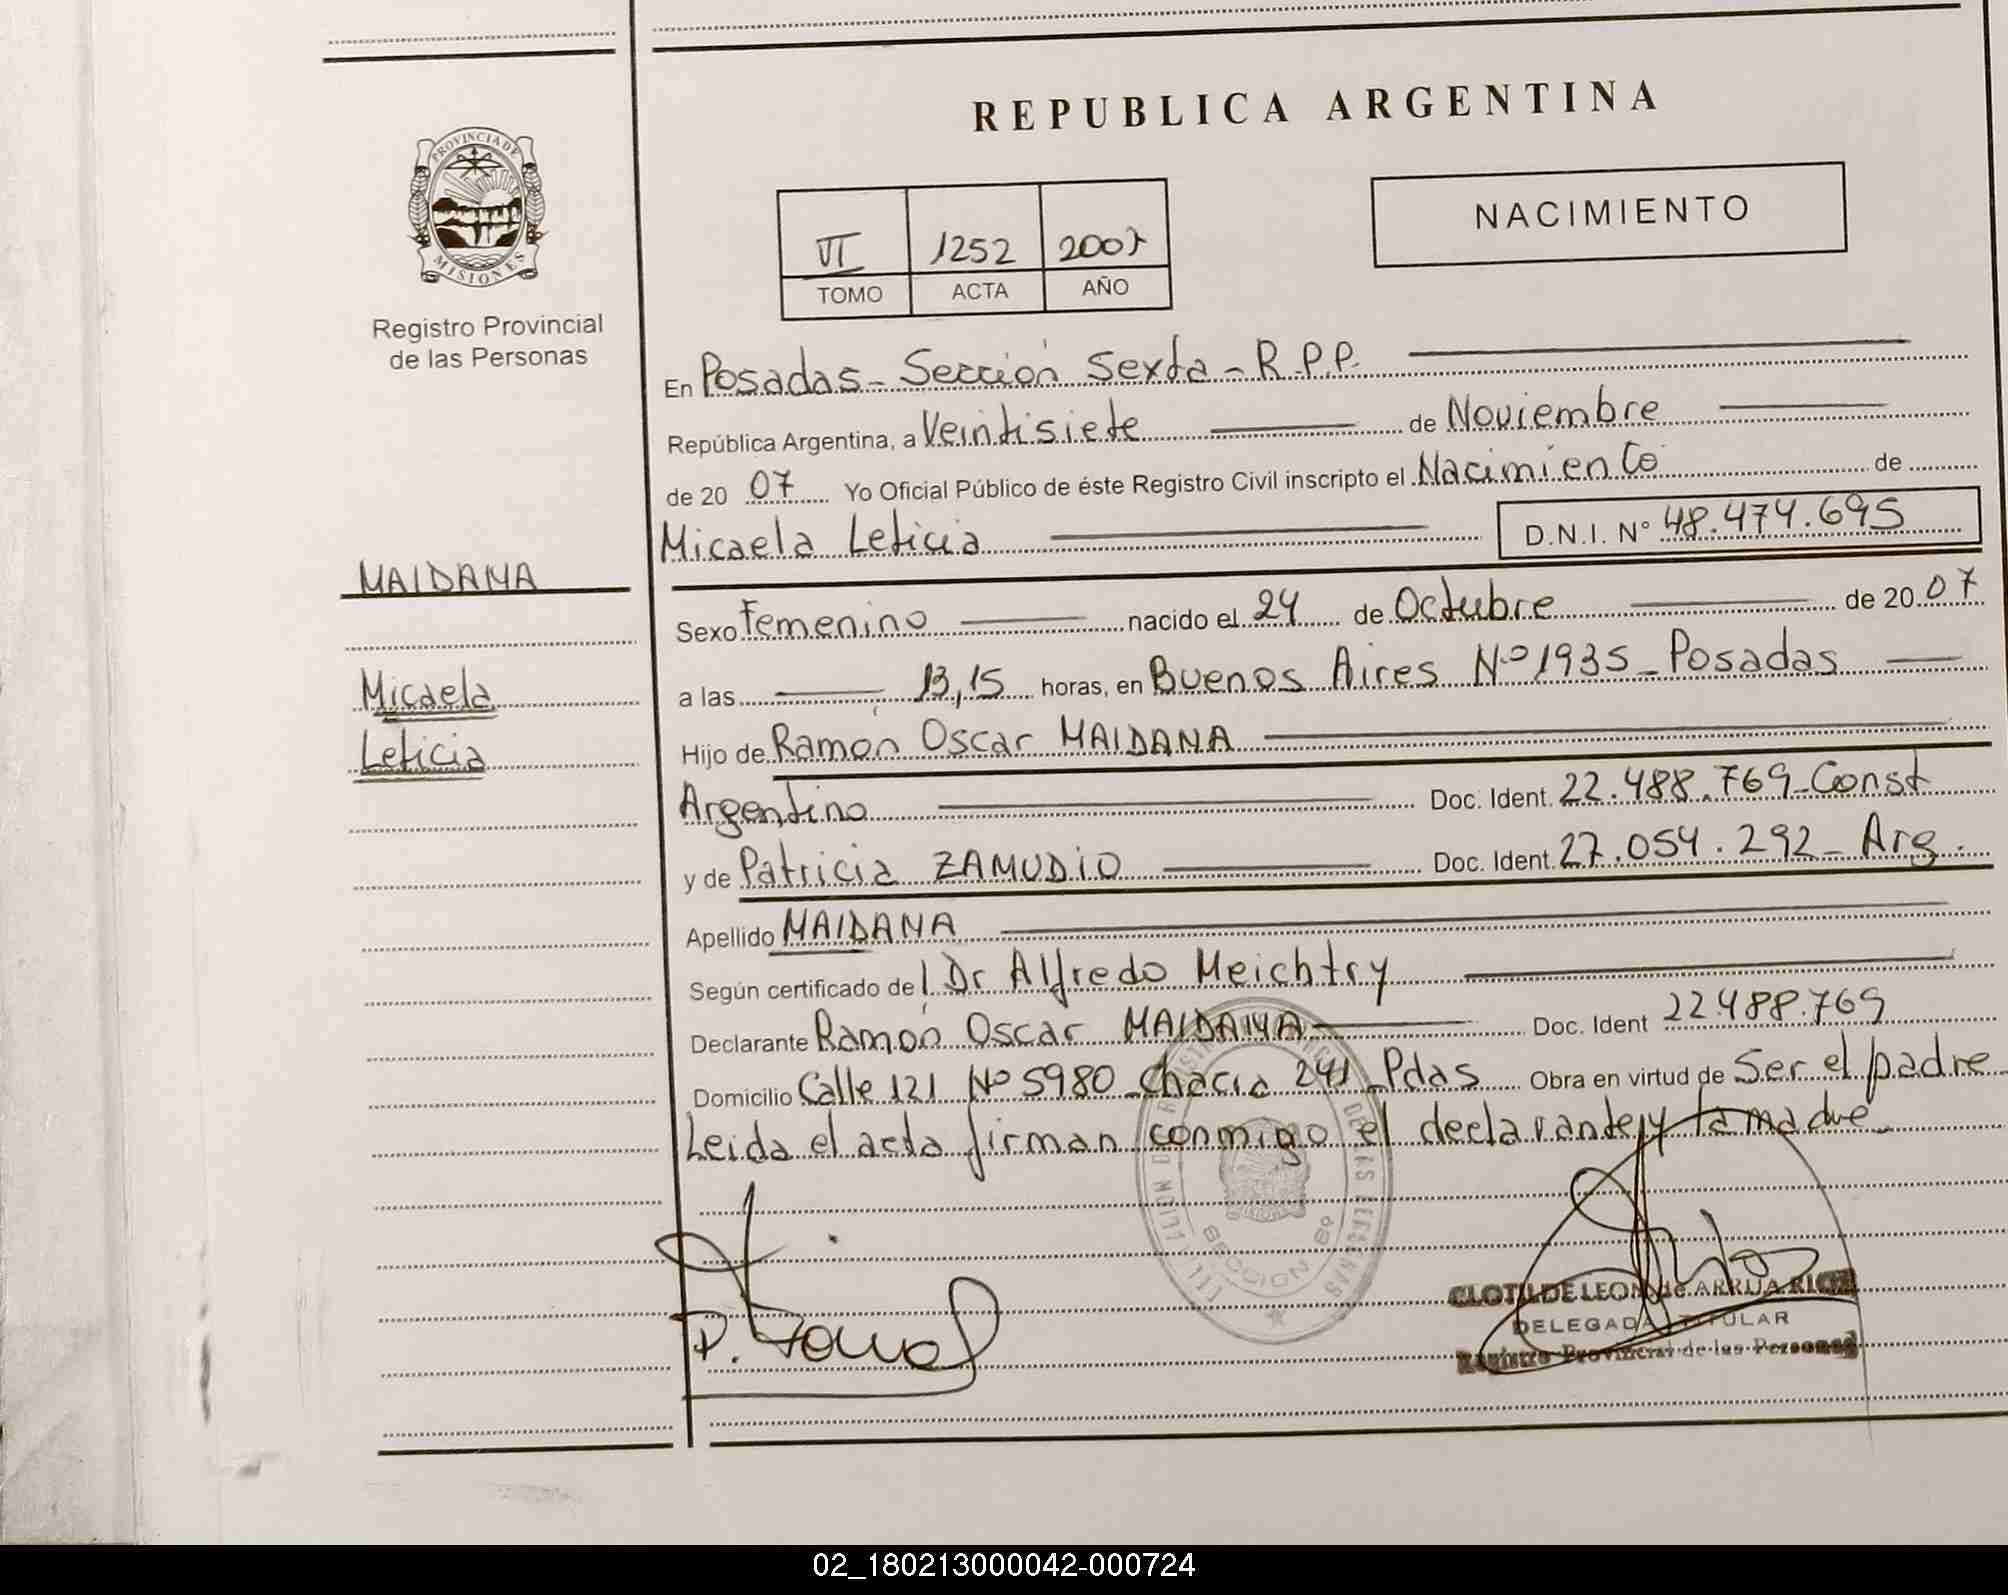 REPUBLICA ARGENTINA
PROVINCIA DE
MISIONES
Registro Provincial
de las Personas
VI 1252 2007
TOMO ACTA AÑO
NACIMIENTO
En Posadas - Sección Sexta - R.P.P.
República Argentina, a Veintisiete de Noviembre
de 20 07 Yo Oficial Público de éste Registro Civil inscripto el Nacimiento de
Micaela Leticia D.N.I. Nº 48.474.695
MAIDANA
Micaela
Leticia
Sexo Femenino nacido el 24 de Octubre de 20 07
a las 13,15 horas, en Buenos Aires Nº 1935 - Posadas
Hijo de Ramón Oscar MAIDANA
Argentino Doc. Ident. 22.488.769 - Const
y de Patricia ZAMUDIO Doc. Ident. 27.054.292 - Arg.
Apellido MAIDANA
Según certificado del Dr Alfredo Meichtry
Declarante Ramón Oscar MAIDANA Doc. Ident 22.488.769
Domicilio Calle 121 Nº 5980 - Chacra 241 - Pdas Obra en virtud de Ser el padre
Leida el acta firman conmigo el declarante y la madre -
SECCION
CLOTILDE LEON de ARRUA
DELEGADA TITULAR
Registro Provincial de las Personas
02_180213000042-000724